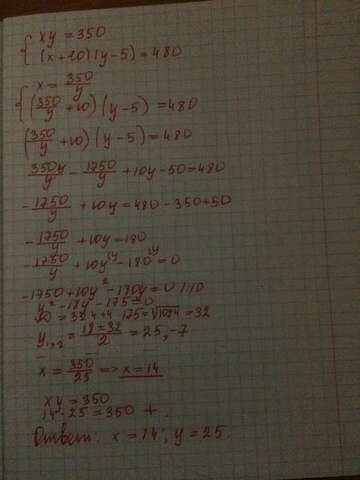 { xy = 350
(x+20)(y-5) = 480
{ x = 350/y
(350/y + 10)(y-5) = 480
(350/y + 10)(y-5) = 480
350y/y - 1750/y + 10y - 50 = 480
-1750/y + 10y = 480 - 350 + 50
-1750/y + 10y = 180
-1750/y + 10y^(y - 180^(y = 0
-1750 + 10y² - 180y = 0 /:10
y² - 18y - 175 = 0
= √1024 = 32
y₁,₂ = (18 ± 32)/2 = 25, -7
x = 350/25 => x = 14
xy = 350
14·25 = 350 +
Ответ: x = 14; y = 25.